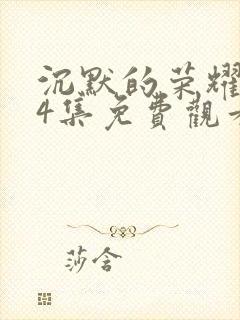 沉默的荣耀
4集免費觀
莎含